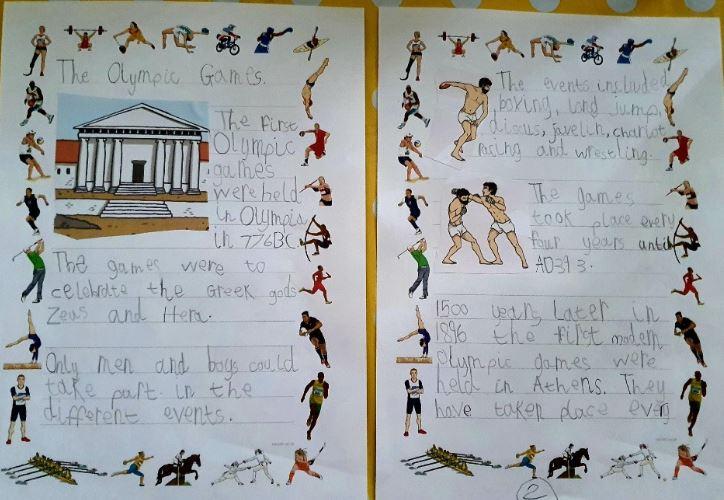 The Olympic Games.
The first
Olympic
games
were held
in Olympia
in 776BC.
The games were to
celebrate the Greek gods
Zeus and Hera.
Only men and boys could
take part in the
different events.
The events included
boxing, long jump,
discus, javelin, chariot
racing and wrestling.
The games
took place every
four years until
AD393.
1500 years later in
1896 the first modern
Olympic games were
held in Athens. They
have taken place every
2